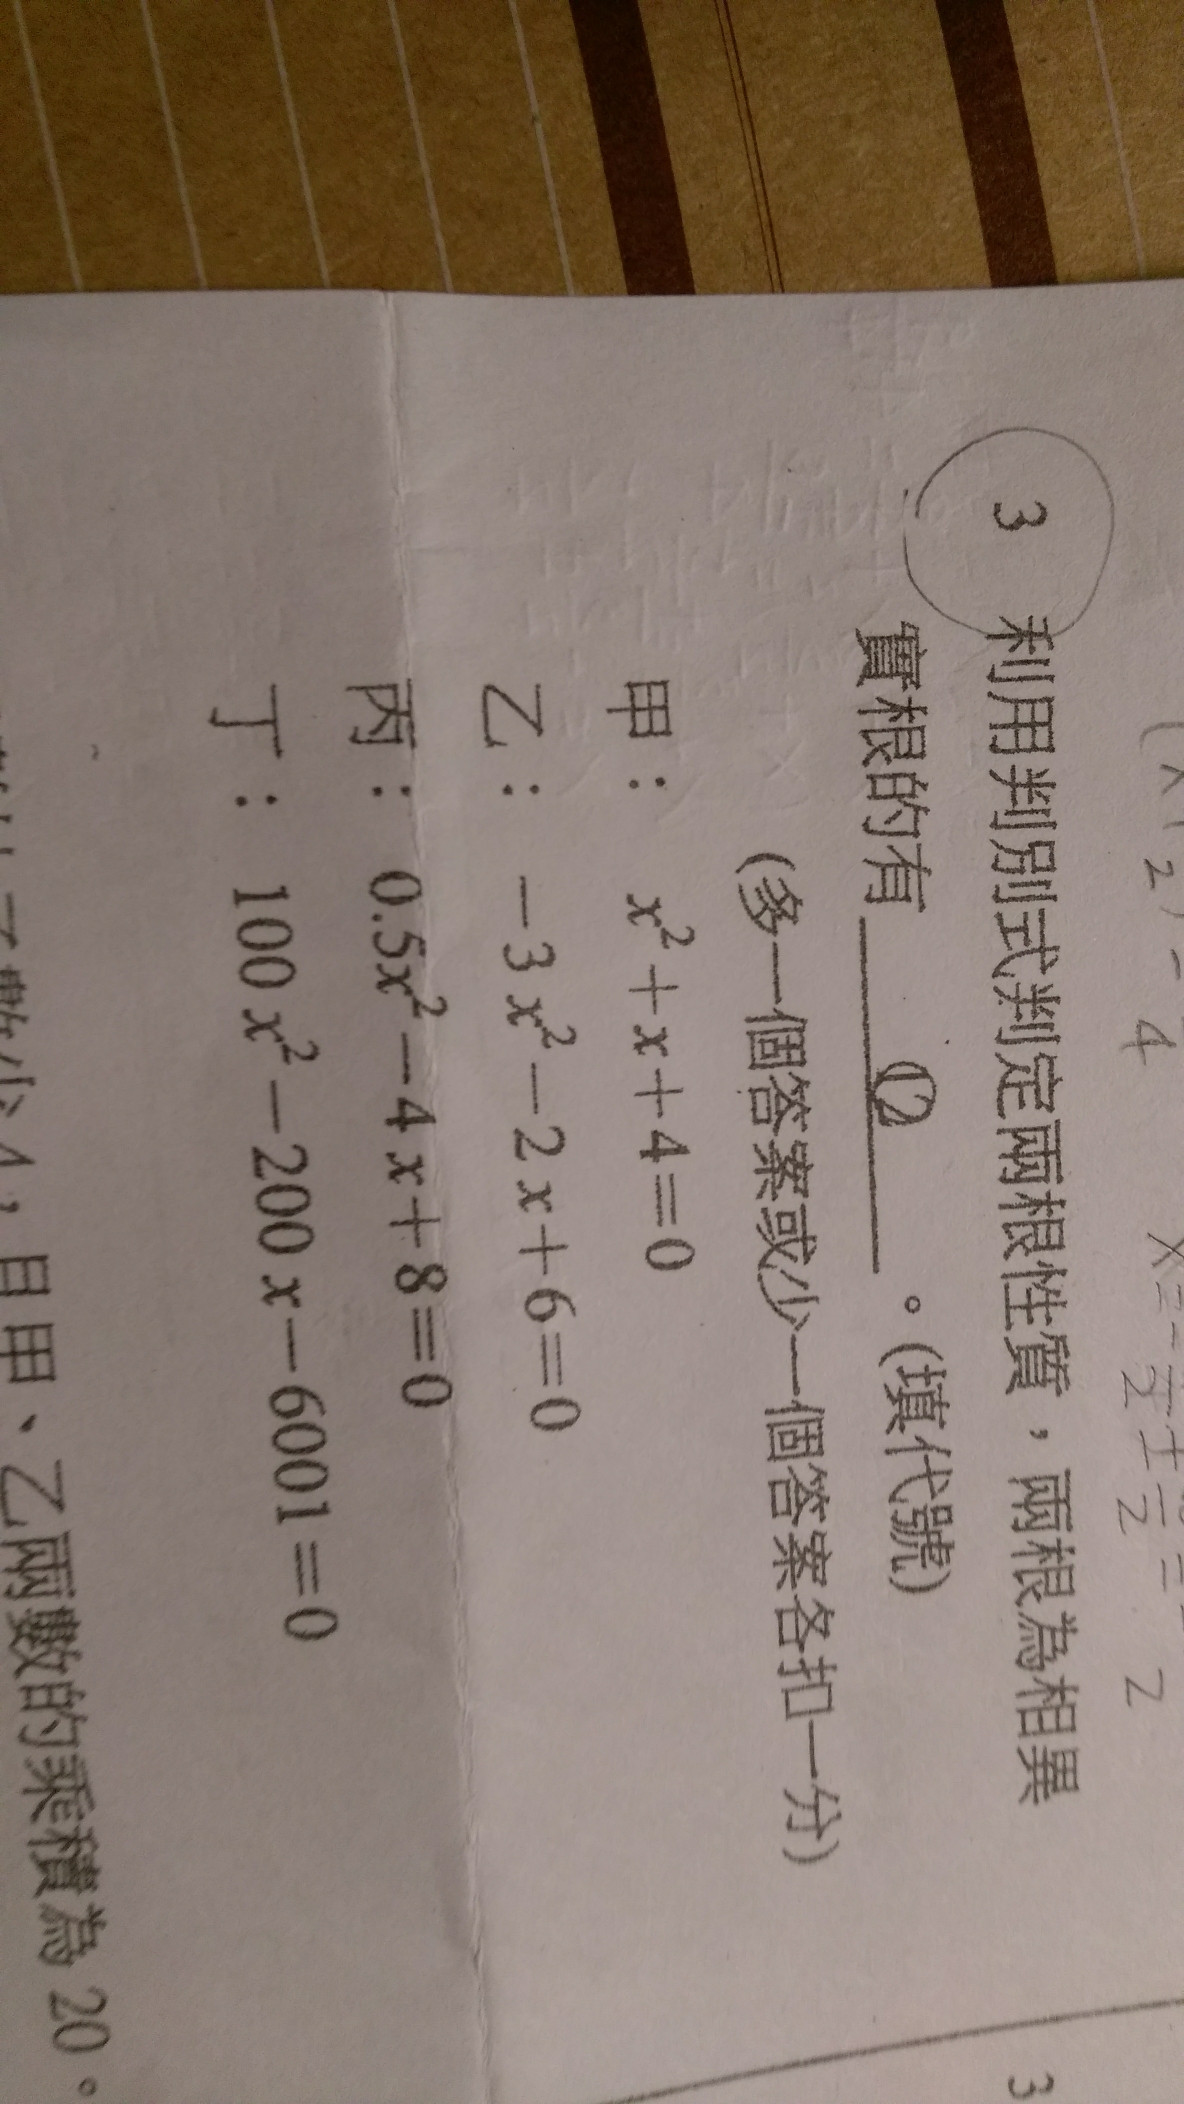 3 利用判別式判定兩根性質，兩根為相異
實根的有 ⑫ 。(填代號)
(多一個答案或少一個答案各扣一分)
甲： x²＋x＋4＝0
乙： －3x²－2x＋6＝0
丙： 0.5x²－4x＋8＝0
丁： 100x²－200x－6001＝0
少4，且甲、乙兩數的乘積為 20。
3